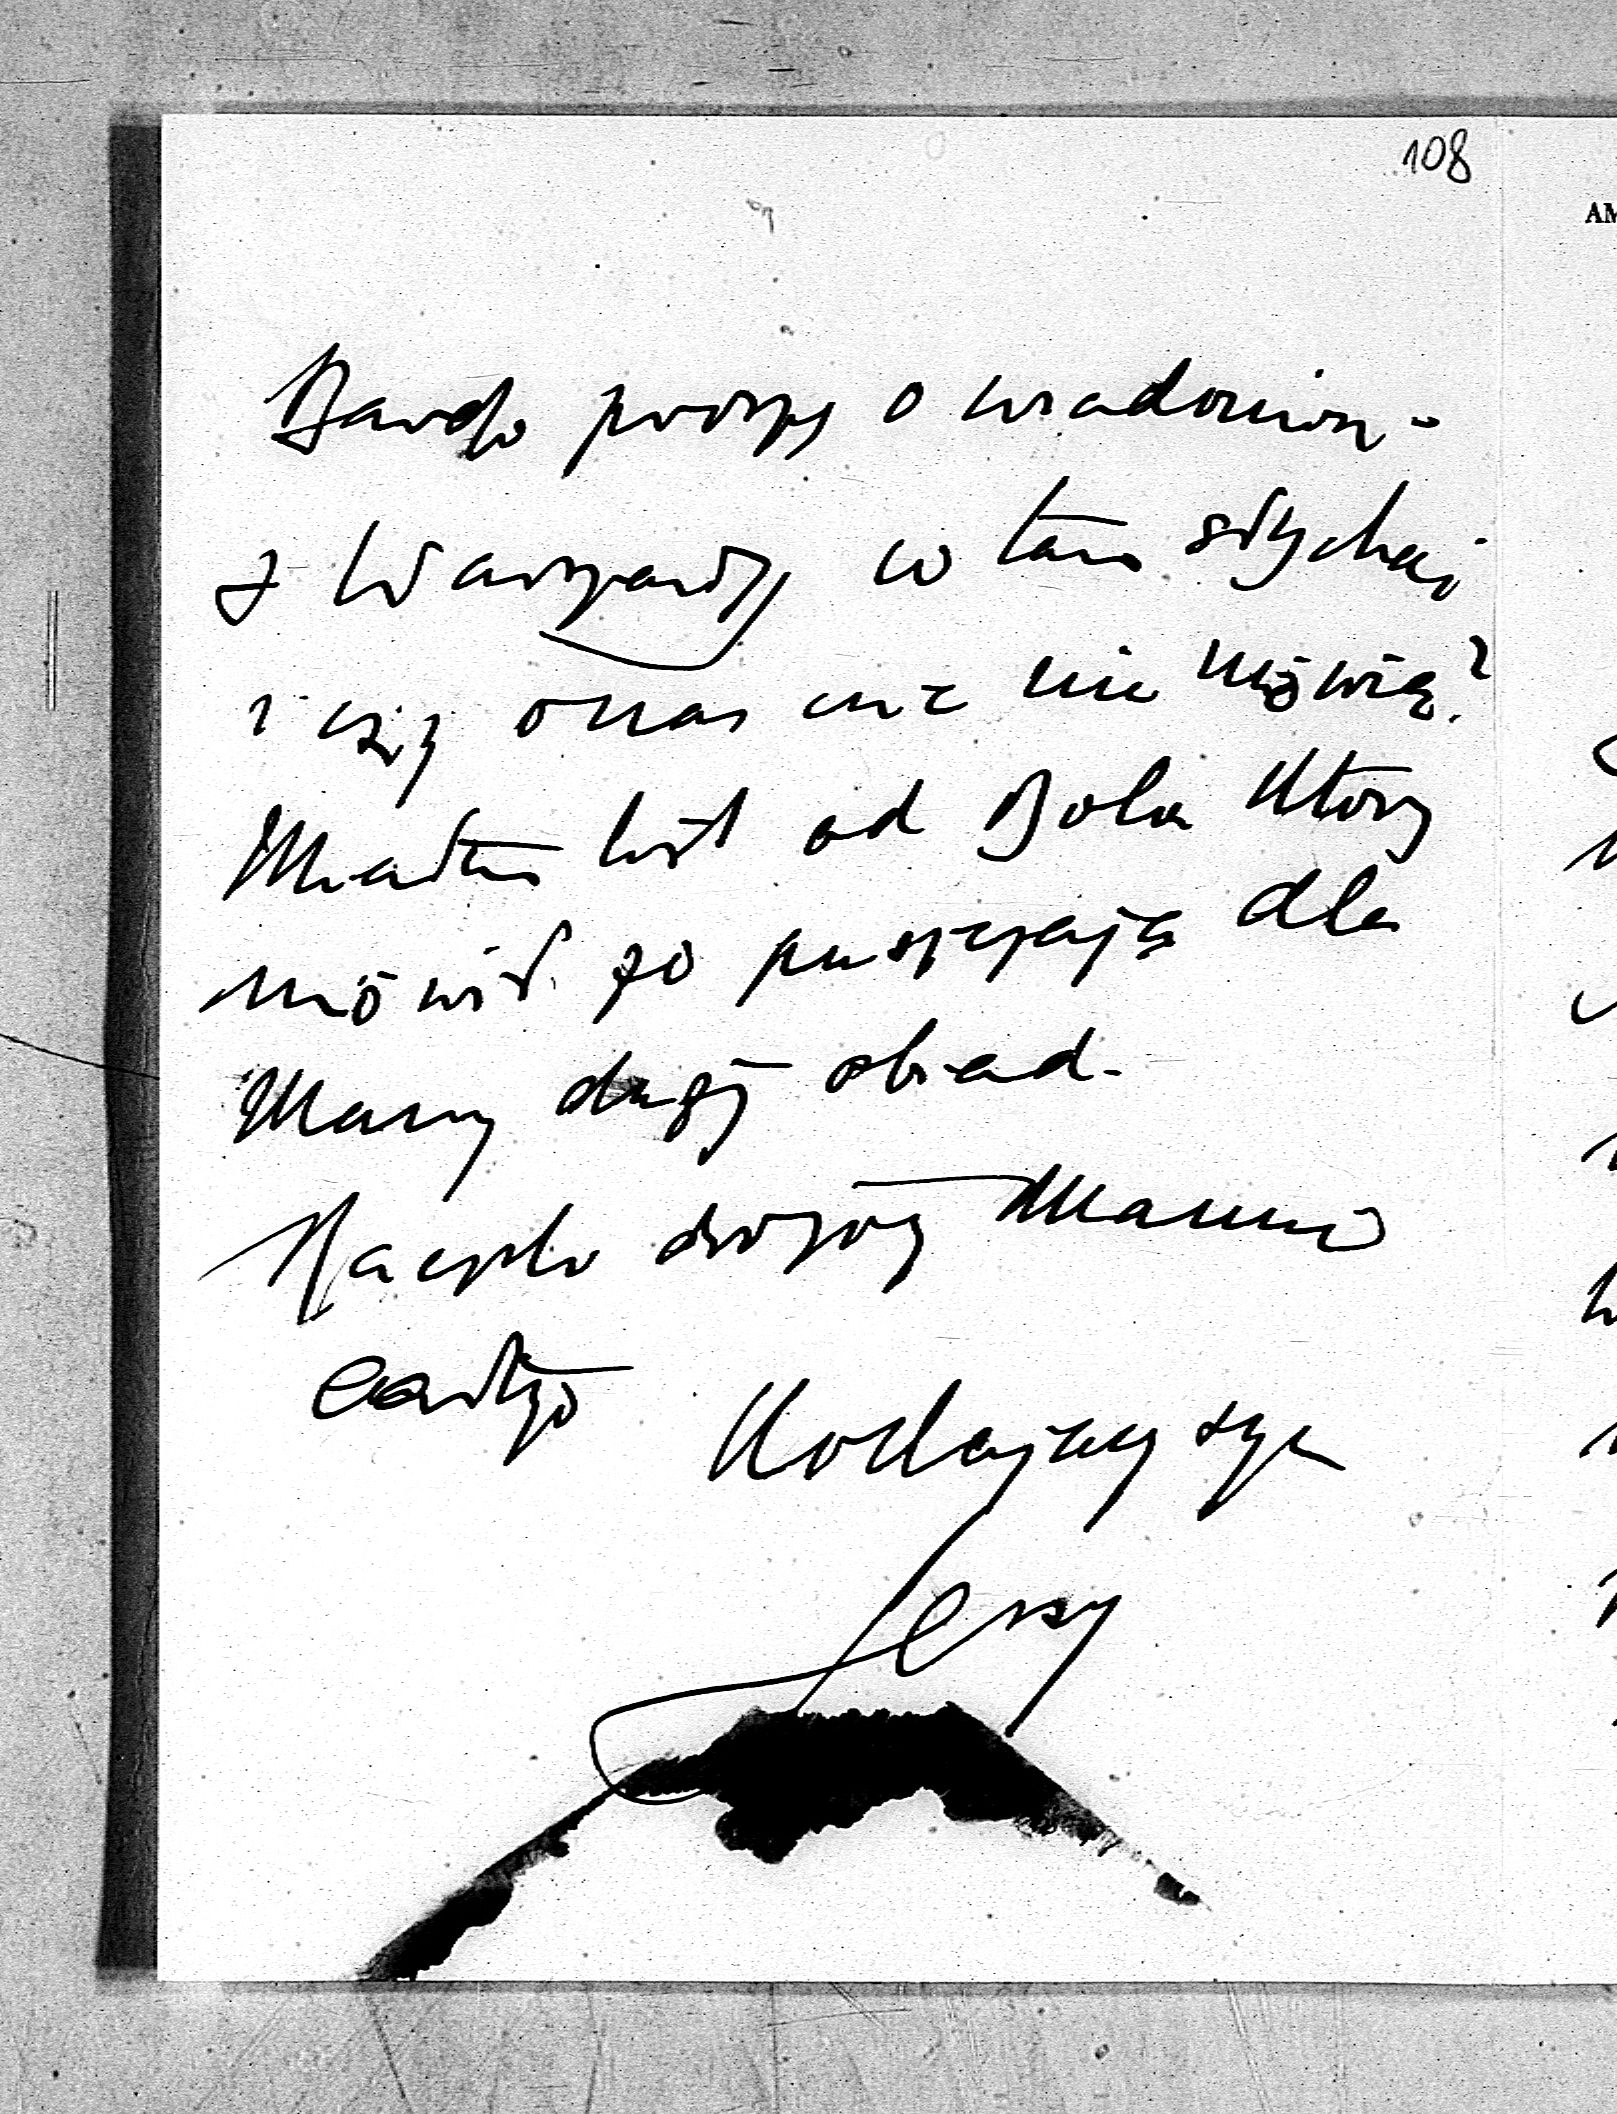 108
AM
Bardzo proszę o wiadomoś-
z Warszawy co tam słychać
i czy o nas nic nie mówią?
Miałem list od Bola który
mówił że puszczają dla
Mamy długi obiad.
Raczki drogiej Mamie
całuję Kochający syn
Jerzy